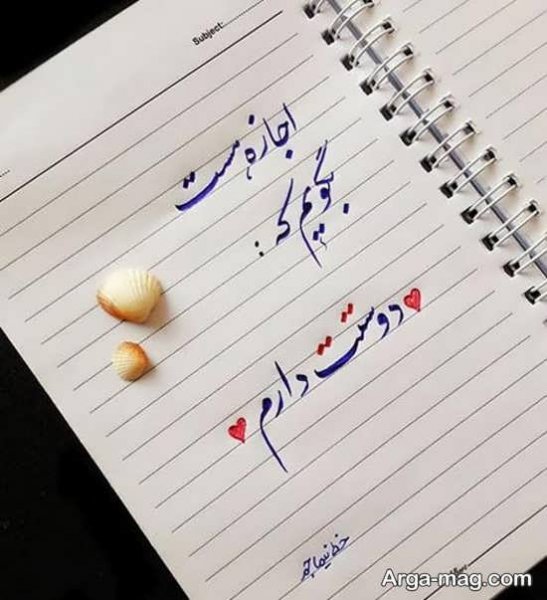 Subject:
اجازه هست
بگویم که :
دوستت دارم
خط نیما
Arga-mag.com